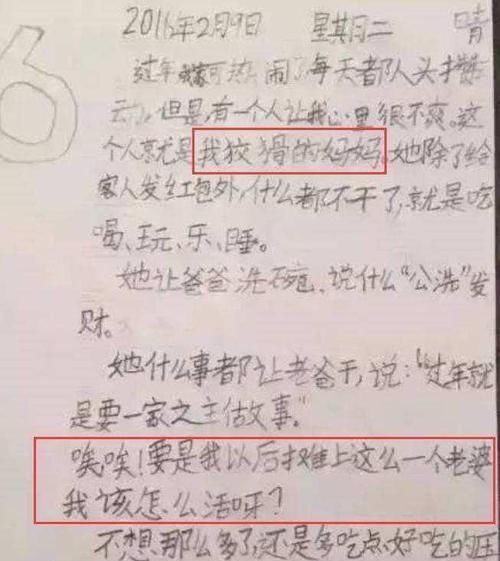 2016年2月9日 星期日二 晴
6
过年我家可热闹了每天都人头攒
动,但是,有一个人让我心里很不爽。这
个人就是我狡猾的妈妈。她除了给
客人发红包外,什么都不干了,就是吃
喝、玩、乐、睡。
她让爸爸洗碗、说什么“公洗”发
财。
她什么事都让老爸干,说:“过年就
是要一家之主做故事。”
唉,唉!要是我以后摊上这么一个老婆
我该怎么活呀?
不想那么多了,还是多吃点好吃的压